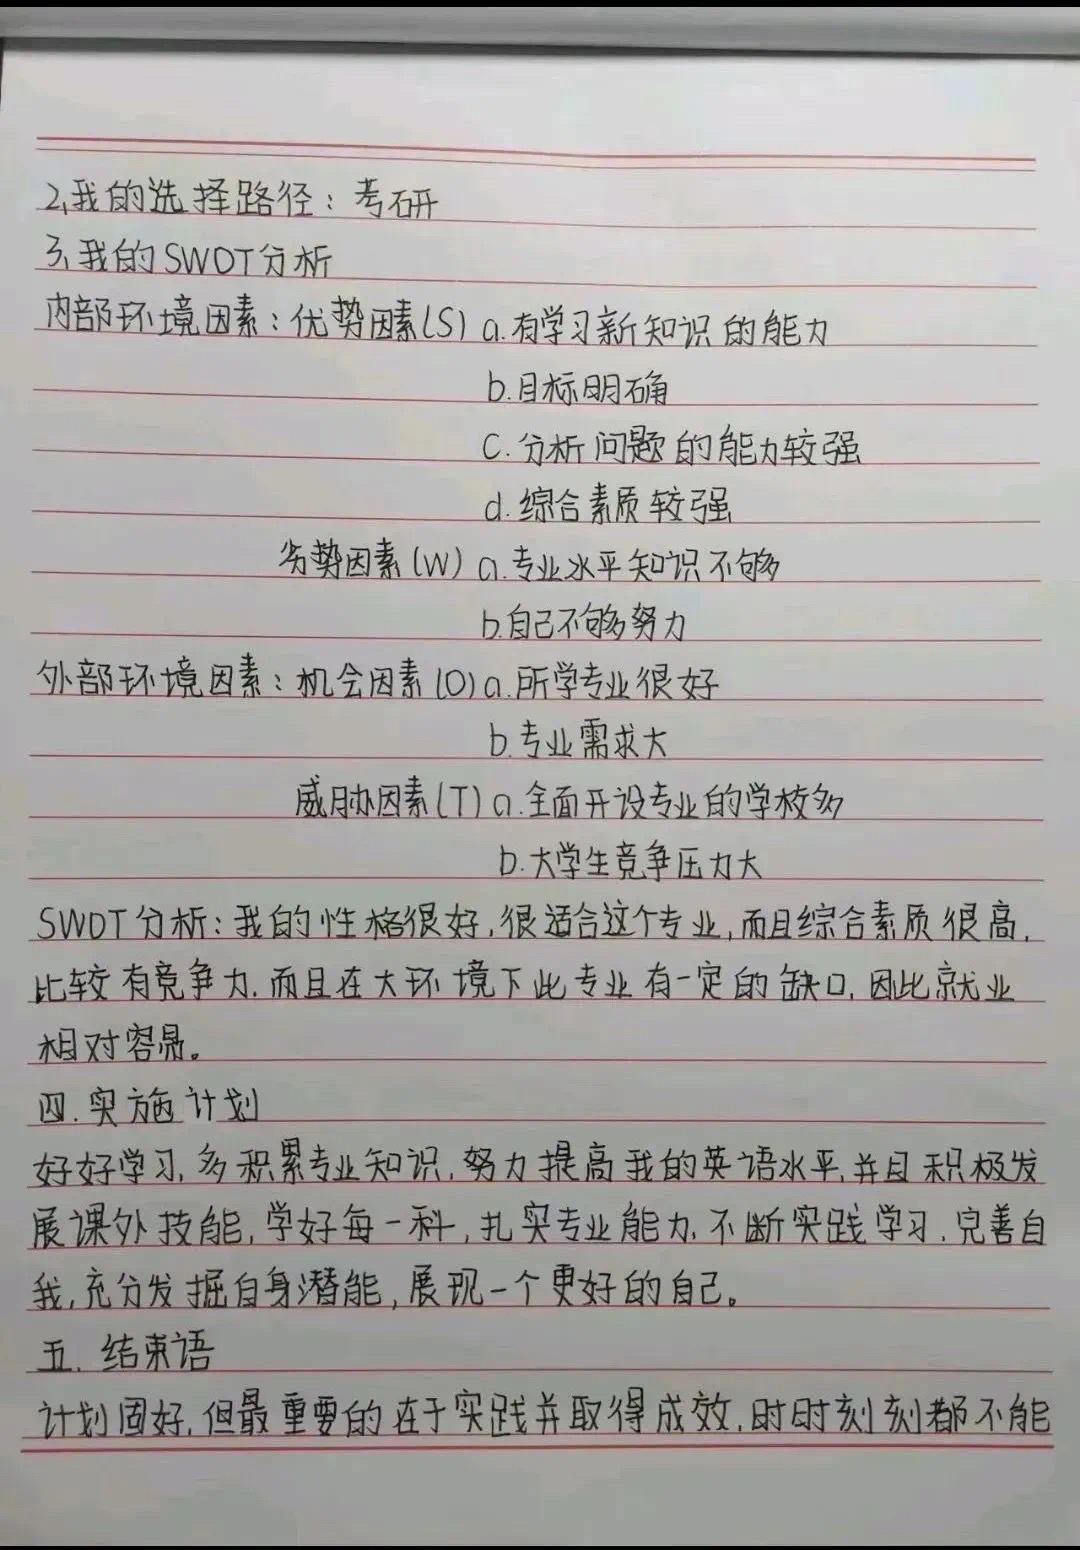 2,我的选择路径：考研
3,我的SWOT分析
内部环境因素：优势因素(S) a.有学习新知识的能力
b.目标明确
C.分析问题的能力较强
d.综合素质较强
劣势因素(W) a.专业水平知识不够
b.自己不够努力
外部环境因素：机会因素(O) a.所学专业很好
b.专业需求大
威胁因素(T) a.全面开设专业的学校多
b.大学生竞争压力大
SWOT分析：我的性格很好,很适合这个专业,而且综合素质很高,
比较有竞争力,而且在大环境下此专业有一定的缺口,因此就业
相对容易。
四.实施计划
好好学习,多积累专业知识,努力提高我的英语水平,并且积极发
展课外技能,学好每一科,扎实专业能力,不断实践学习,完善自
我,充分发掘自身潜能,展现一个更好的自己。
五.结束语
计划固好,但最重要的在于实践并取得成效,时时刻刻都不能